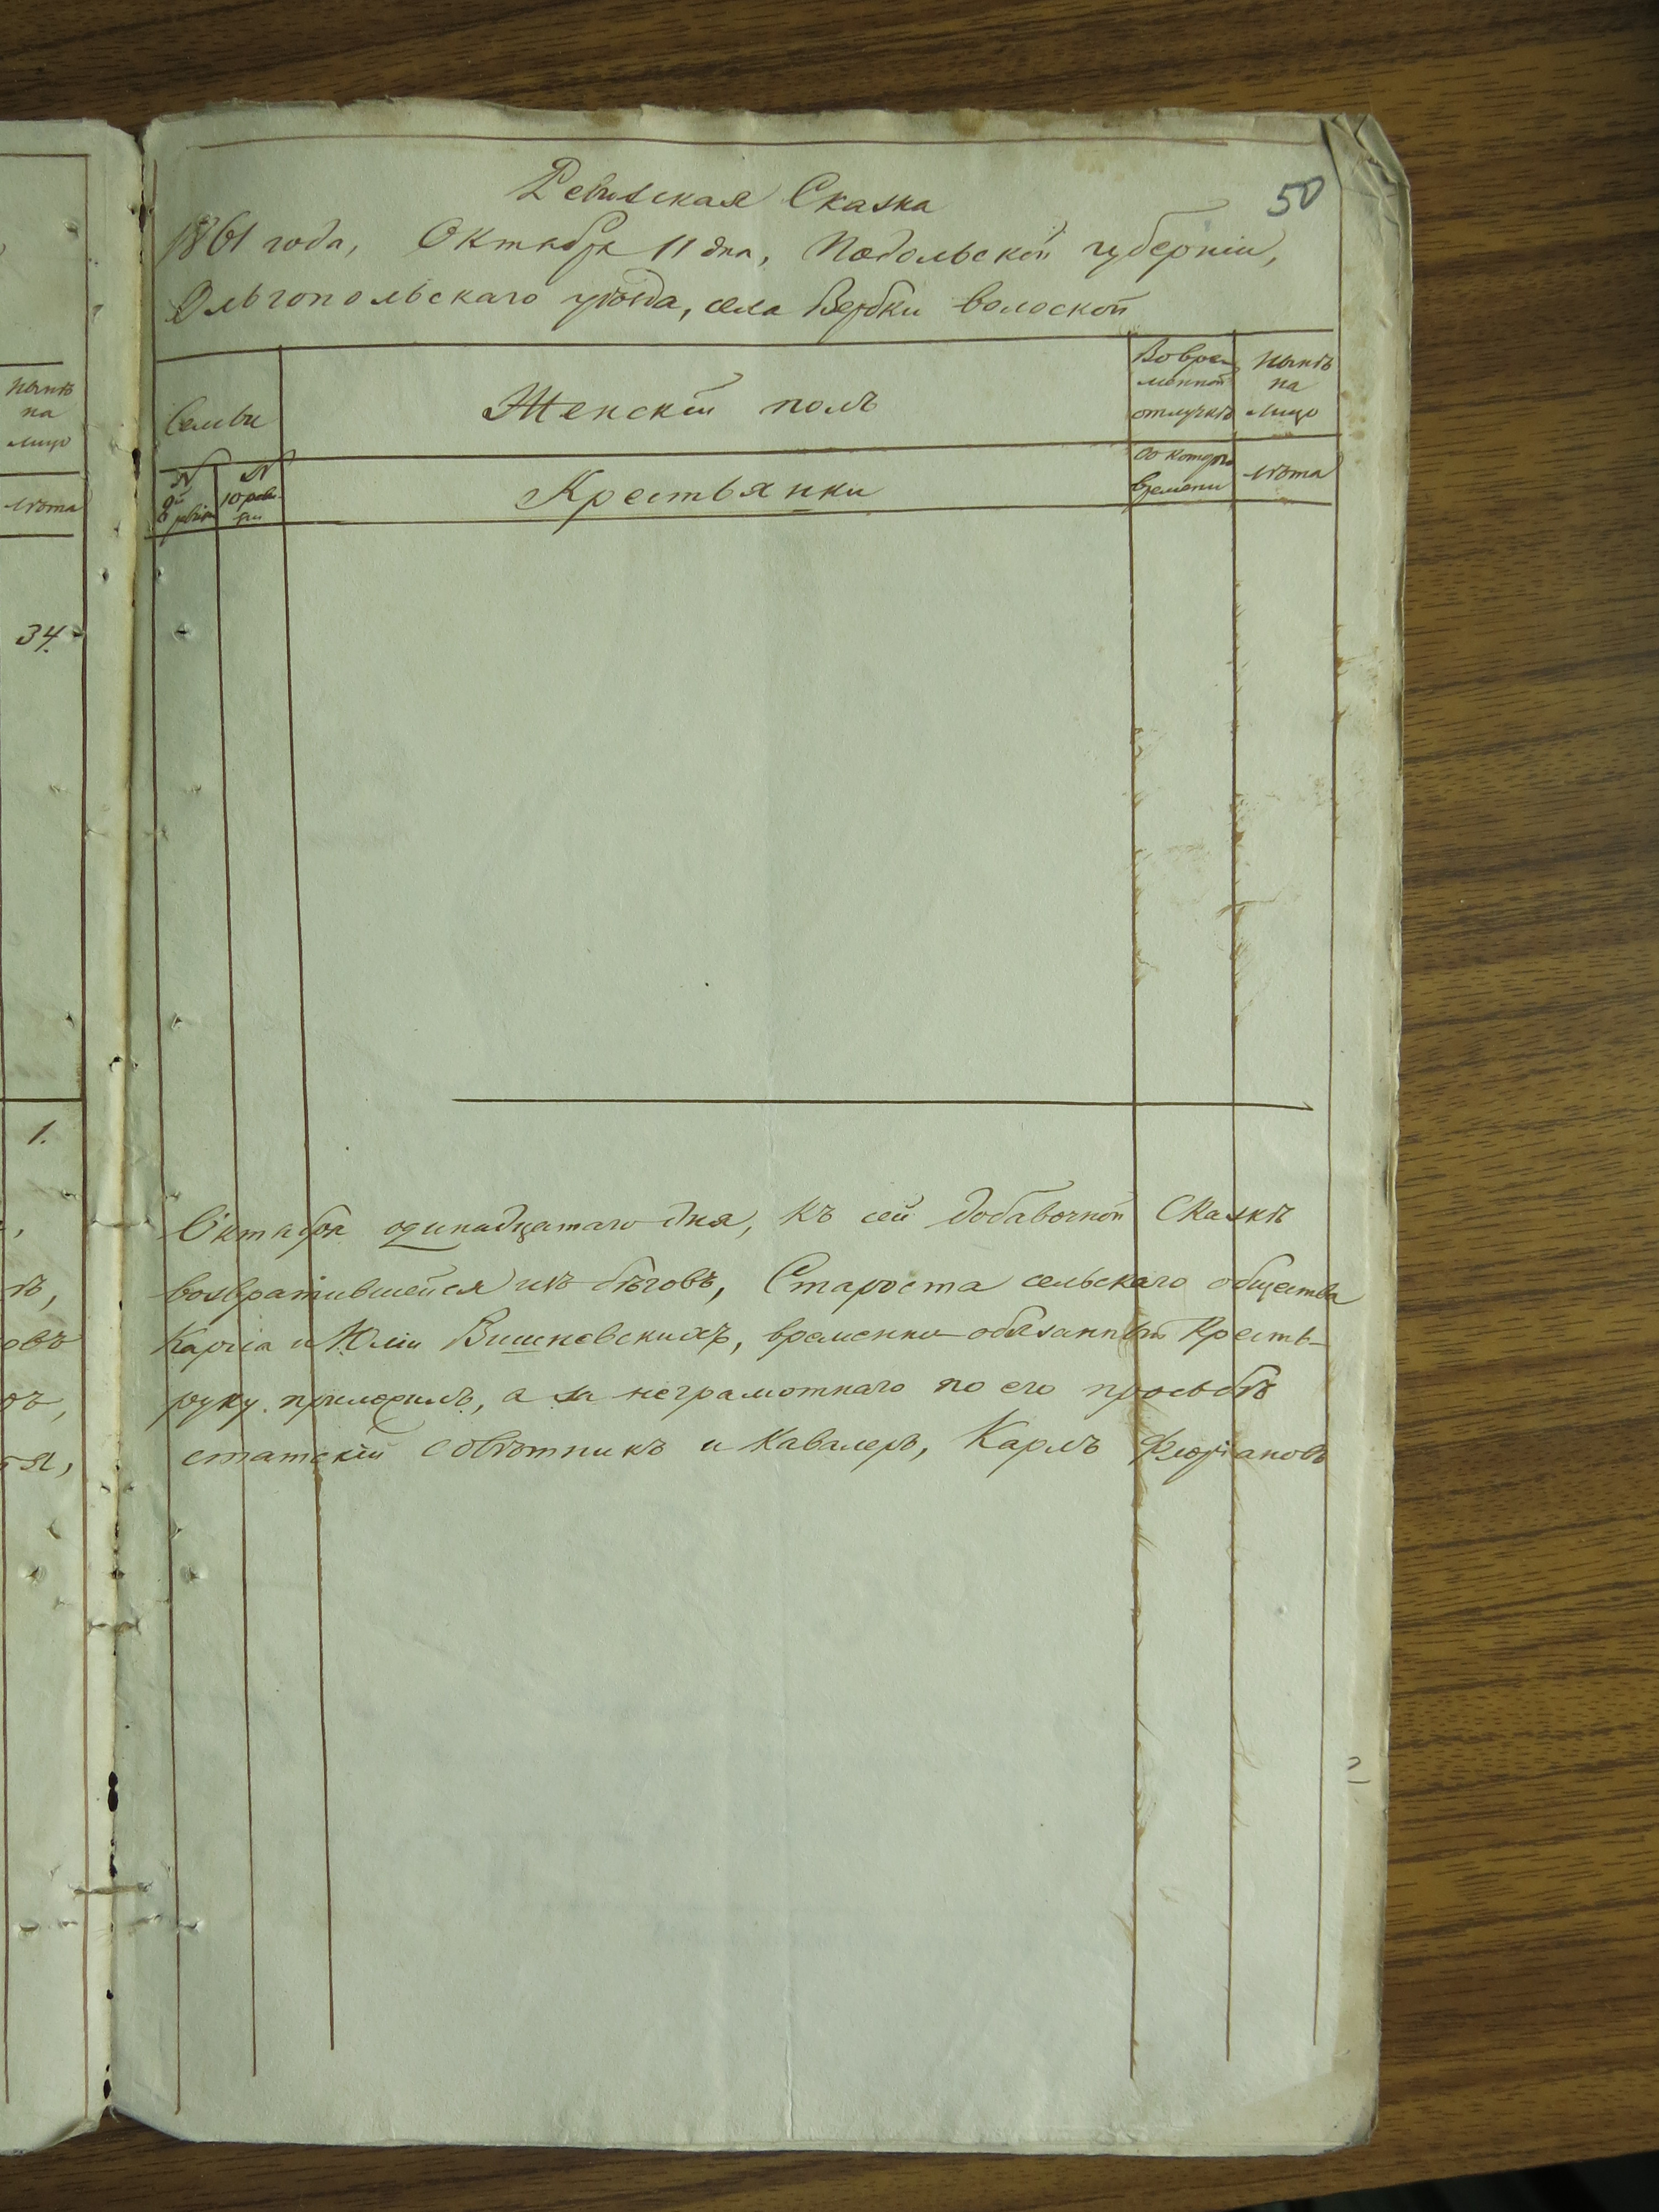 ныкѣ
на
лицо
лѣта
34.
1.
,
ѣ,
овъ
ръ,
ся,
50
Ревизская Сказка
1861 года, Октября 11 дня, Подольской губерніи,
Ольгопольскаго уѣзда, села Вербки волоской
Семьи
Женскій полъ
Во вре-
менной
отлучкѣ
Нынѣ
на
лицо
№
№
10 реви-
зіи
Крестьянки
Съ котораго
времени
лѣта
Октября одинадцатаго дня, къ сей добавочной Сказкѣ
возвратившейся изъ бѣговъ, Староста сельскаго общества
Карла и Юліи Вишневскихъ, временно-обязанныхъ Кресть-
руку приложилъ, а за неграмотнаго по его просьбѣ
статскій совѣтникъ и Кавалеръ, Карлъ Флоріановъ